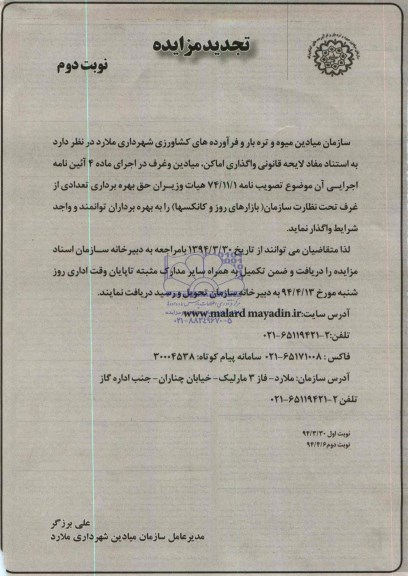 تجدید مزایده
نوبت دوم
سازمان میادین میوه و تره بار و فرآورده های کشاورزی شهرداری ملارد در نظر دارد
به استناد مفاد لایحه قانونی واگذاری اماکن، میادین وغرف در اجرای ماده ۴ آئین نامه
اجرایی آن موضوع تصویب نامه ۷۴/۱۱/۱ هیات وزیران حق بهره برداری تعدادی از
غرف تحت نظارت سازمان( بازارهای روز و کانکسها) را به بهره برداران توانمند و واجد
شرایط واگذار نماید.
لذا متقاضیان می توانند از تاریخ ۱۳۹۴/۳/۳۰ بامراجعه به دبیرخانه سازمان اسناد
مزایده را دریافت و ضمن تکمیل به همراه سایر مدارک مثبته تاپایان وقت اداری روز
شنبه مورخ ۹۴/۴/۱۳ به دبیرخانه سازمان تحویل و رسید دریافت نمایند.
آدرس سایت: www.malard mayadin.ir
تلفن: ۲-۶۵۱۱۹۴۲۱-۰۲۱
۰۲۱-۸۸۳۴۹۶۷۰-۵
فاکس : ۶۵۱۷۱۰۰۸-۰۲۱ سامانه پیام کوتاه: ۳۰۰۰۴۵۳۸
آدرس سازمان: ملارد- فاز ۳ مارلیک- خیابان چناران- جنب اداره گاز
تلفن ۲-۶۵۱۱۹۴۲۱-۰۲۱
نوبت اول ۹۴/۳/۳۰
نوبت دوم ۹۴/۴/۶
علی برزگر
مدیرعامل سازمان میادین شهرداری ملارد